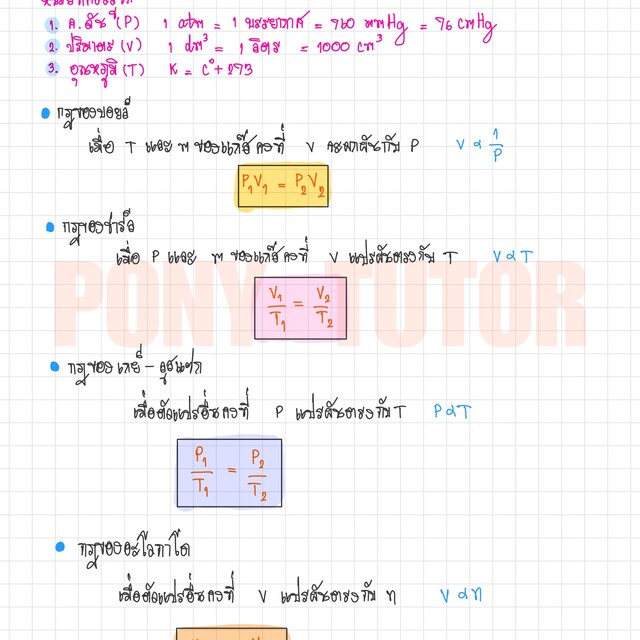 1. ค.ดัน (P) 1 atm = 1 บรรยากาศ = 760 mmHg = 76 cmHg
2. ปริมาตร (V) 1 dm³ = 1 ลิตร = 1000 cm³
3. อุณหภูมิ (T) K = C° + 273
กฎของบอยล์
เมื่อ T และ m ของแก๊ส คงที่ V จะผกผันกับ P V ∝ 1/P
P₁V₁ = P₂V₂
กฎของชาร์ล
เมื่อ P และ m ของแก๊ส คงที่ V แปรผันตรงกับ T V ∝ T
V₁/T₁ = V₂/T₂
PONY TUTOR
กฎของ เกย์ - ลูสแซก
เมื่อตัวแปรอื่นคงที่ P แปรผันตรงกับ T P ∝ T
P₁/T₁ = P₂/T₂
กฎของอะโวกาโด
เมื่อตัวแปรอื่นคงที่ V แปรผันตรงกับ n V ∝ n